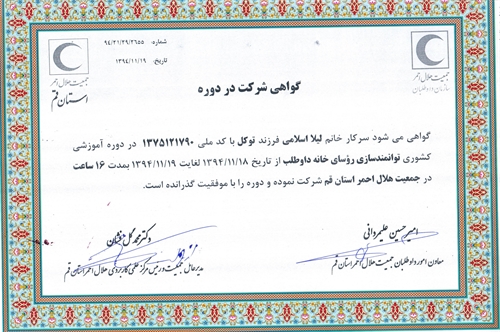 شماره: ۹۴/۲۱/۲۹/۲۶۵۵
تاریخ: ۱۳۹۴/۱۱/۱۹
جمعیت هلال احمر
سازمان داوطلبان
جمعیت هلال احمر
استان قم
گواهی شرکت در دوره
گواهی می شود سرکار خانم لیلا اسلامی فرزند توکل با کد ملی ۱۳۷۵۱۲۱۷۹۰ در دوره آموزشی
کشوری توانمندسازی رؤسای خانه داوطلب از تاریخ ۱۳۹۴/۱۱/۱۸ لغایت ۱۳۹۴/۱۱/۱۹ بمدت ۱۶ ساعت
در جمعیت هلال احمر استان قم شرکت نموده و دوره را با موفقیت گذرانده است.
امیرحسین علیمردانی
معاون امور داوطلبان جمعیت هلال احمر استان قم
دکتر محمد گل فشان
مدیرعامل جمعیت و رییس مرکز علمی کاربردی هلال احمر استان قم